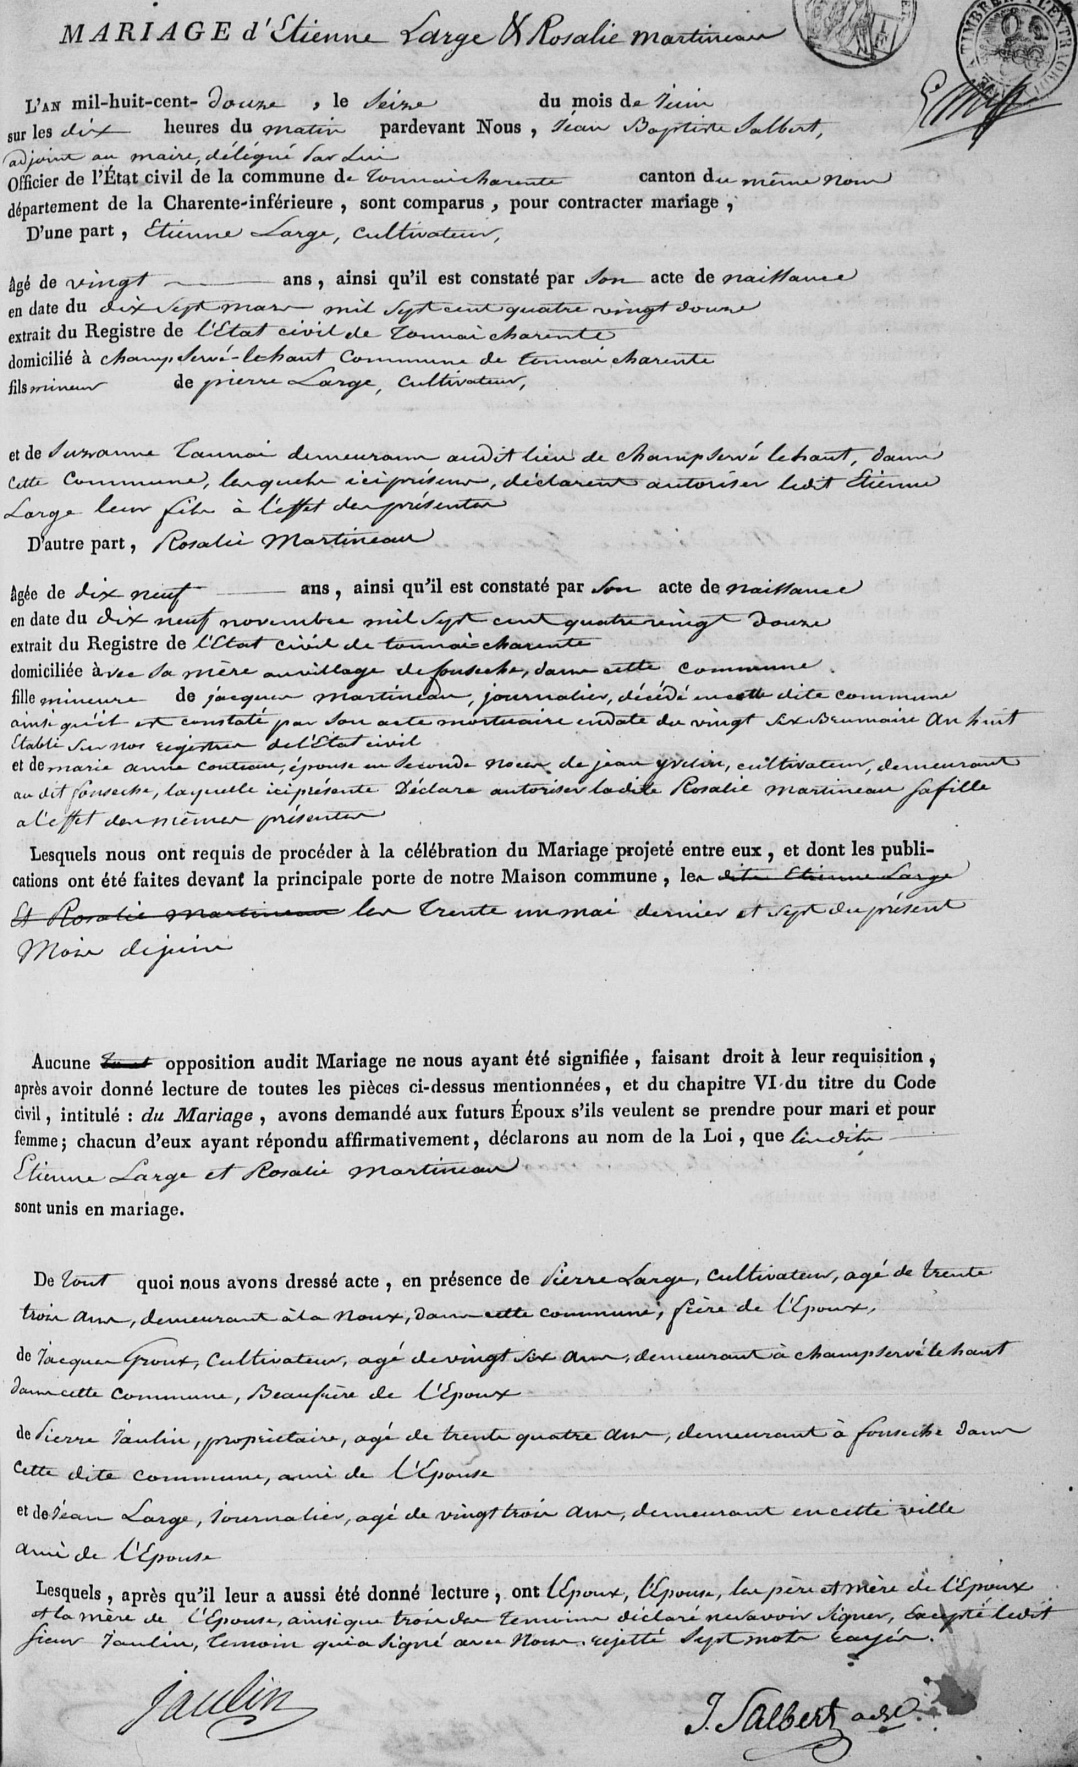 MARIAGE d'Etienne Large & Rosalie Martineau
L'AN mil-huit-cent- Douze , le Seize du mois de Juin
sur les dix heures du matin pardevant Nous , Jean Baptiste Salbert,
adjoint au maire, délégué par Lui
Officier de l'État civil de la commune de Tonnaicharente canton du même Nom
département de la Charente-inférieure , sont comparus , pour contracter mariage ,
D'une part , Etienne Large, cultivateur,
âgé de vingt ans , ainsi qu'il est constaté par son acte de naissance
en date du dix sept mars mil sept cent quatre vingt douze
extrait du Registre de l'Etat civil de Tonnaicharente
domicilié à champservé-lehaut commune de tonnaicharente
fils mineur de pierre Large, cultivateur,
et de Suzanne Tannai demeurans audit lieu de champservé lehaut, dans
cette commune, lesquels ici présens, déclarent autoriser ledit Etienne
Large leur fils à l'effet des présentes
D'autre part , Rosalie Martineau
âgée de dix neuf ans , ainsi qu'il est constaté par son acte de naissance
en date du dix neuf novembre mil sept cent quatrevingt douze
extrait du Registre de l'Etat civil de tonnaicharente
domiciliée avec sa mère au village de fonseche, dans cette commune.
fille mineure de jacques Martineau, journalier, décédé en cette dite commune
ainsi qu'il est constaté par son acte mortuaire en date du vingt six Brumaire An huit
Etabli sur nos registres de l'Etat civil
et de marie anne couteau, épouse en seconde noces de jean yvelin, cultivateur, demeurant
au dit fonseche, laquelle ici présente Déclare autoriser ladite Rosalie Martineau sa fille
a l'effet des mêmes présentes
Lesquels nous ont requis de procéder à la célébration du Mariage projeté entre eux , et dont les publi-
cations ont été faites devant la principale porte de notre Maison commune , les dits Etienne Large
Et Rosalie Martineau les trente un mai dernier et sept du présent
Mois de juin
Aucune opposition audit Mariage ne nous ayant été signifiée , faisant droit à leur requisition ,
après avoir donné lecture de toutes les pièces ci-dessus mentionnées , et du chapitre VI du titre du Code
civil , intitulé : du Mariage , avons demandé aux futurs Époux s'ils veulent se prendre pour mari et pour
femme ; chacun d'eux ayant répondu affirmativement , déclarons au nom de la Loi , que lesdits
Etienne Large et Rosalie Martineau
sont unis en mariage.
De tout quoi nous avons dressé acte , en présence de Pierre Large, cultivateur, agé de trente
trois ans, demeurant à la Noux, dans cette commune, frère de l'Epoux,
de Jacques Groux, Cultivateur, agé de vingt six ans, demeurant à champservé le haut
dans cette commune, Beaufrère de l'Epoux
de Pierre Jaulin, propriétaire, agé de trente quatre ans, demeurant à fonseche dans
cette dite commune, ami de l'Epouse
et de Jean Large, Journalier, agé de vingt trois ans, demeurant en cette ville
ami de l'Epouse
Lesquels , après qu'il leur a aussi été donné lecture , ont l'Epoux, l'Epouse, les père et mère de l'Epoux
et la mère de l'Epouse, ainsi que trois des temoins déclaré ne savoir signer, Excepté ledit
sieur Jaulin, temoin qui a signé avec Nous. rejetté sept mots rayés.
Jaulin
J. Salbert adt